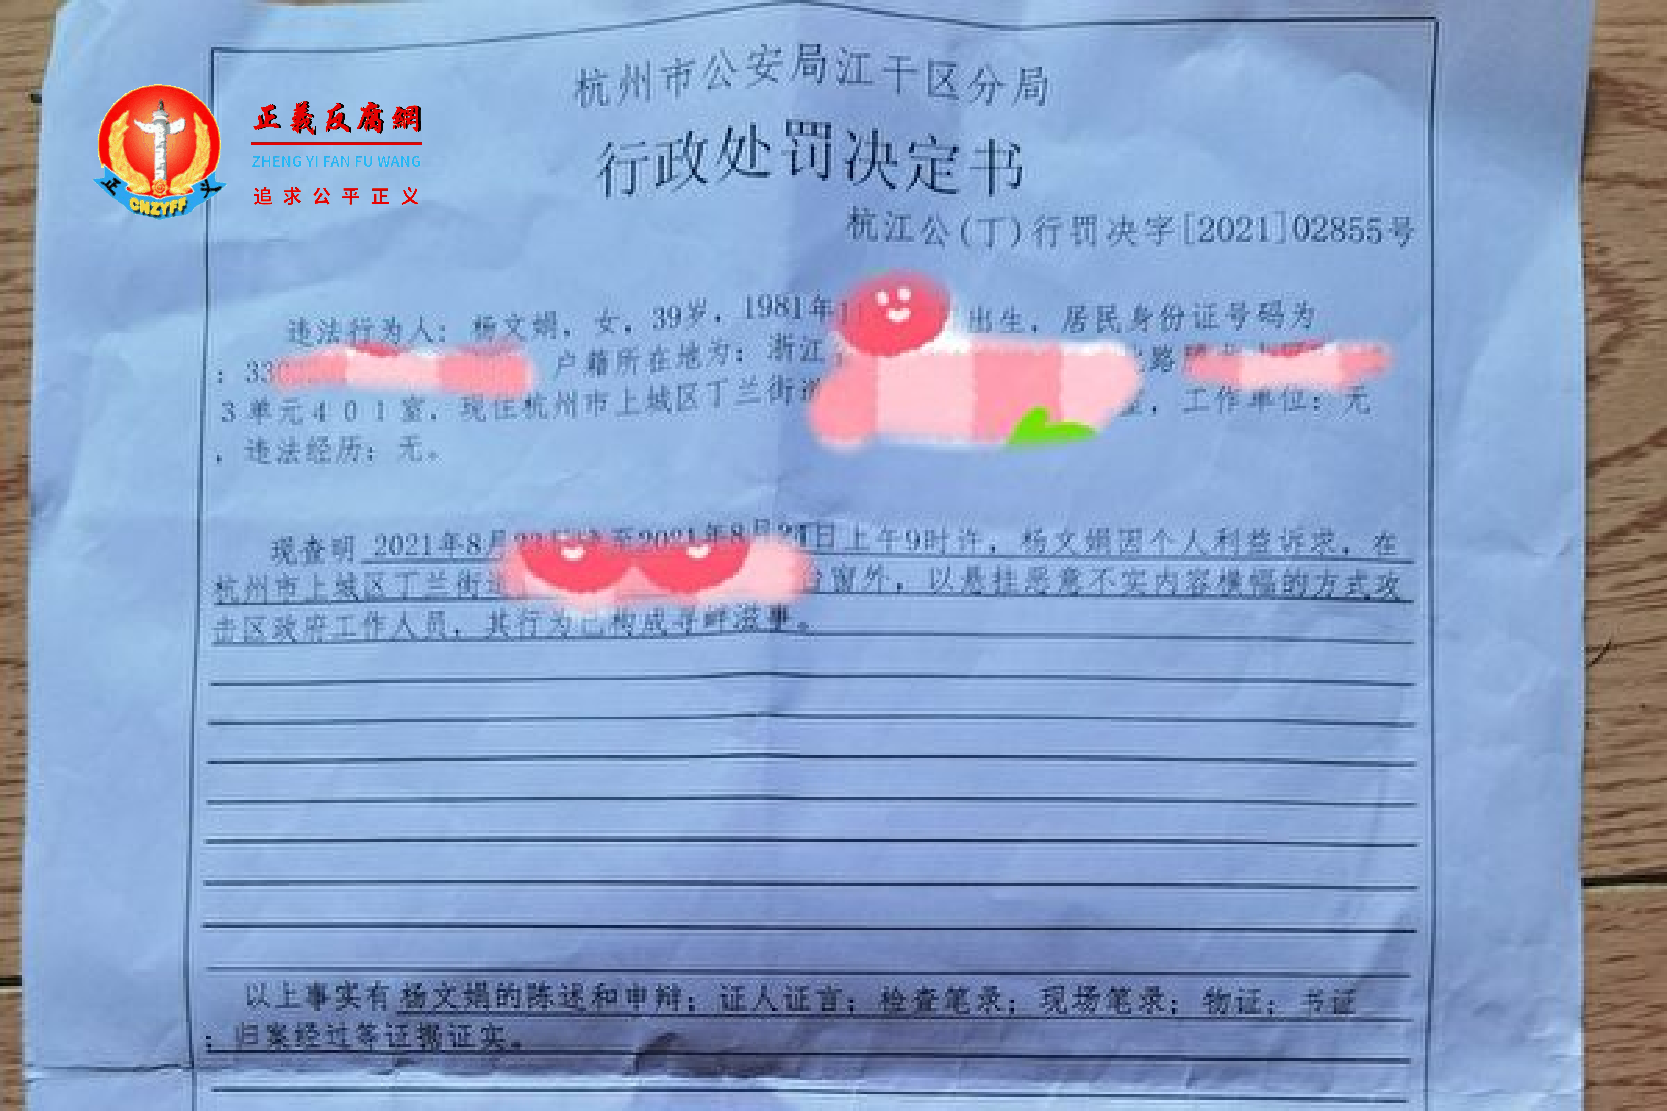 正義反腐網
ZHENG YI FAN FU WANG
追求公平正义
正义
CNZYFF
杭州市公安局江干区分局
行政处罚决定书
杭江公(丁)行罚决字[2021]02855号
违法行为人：杨文娟，女，39岁，1981年 出生，居民身份证号码为
：33 户籍所在地为：浙江 路
3单元401室，现住杭州市上城区丁兰街道 ，工作单位：无
，违法经历：无。
现查明 2021年8月 至2021年8月24日上午9时许，杨文娟因个人利益诉求，在
杭州市上城区丁兰街道 窗外，以悬挂恶意不实内容横幅的方式攻
击区政府工作人员，其行为已构成寻衅滋事。
以上事实有杨文娟的陈述和申辩；证人证言；检查笔录；现场笔录；物证；书证
；归案经过等证据证实。